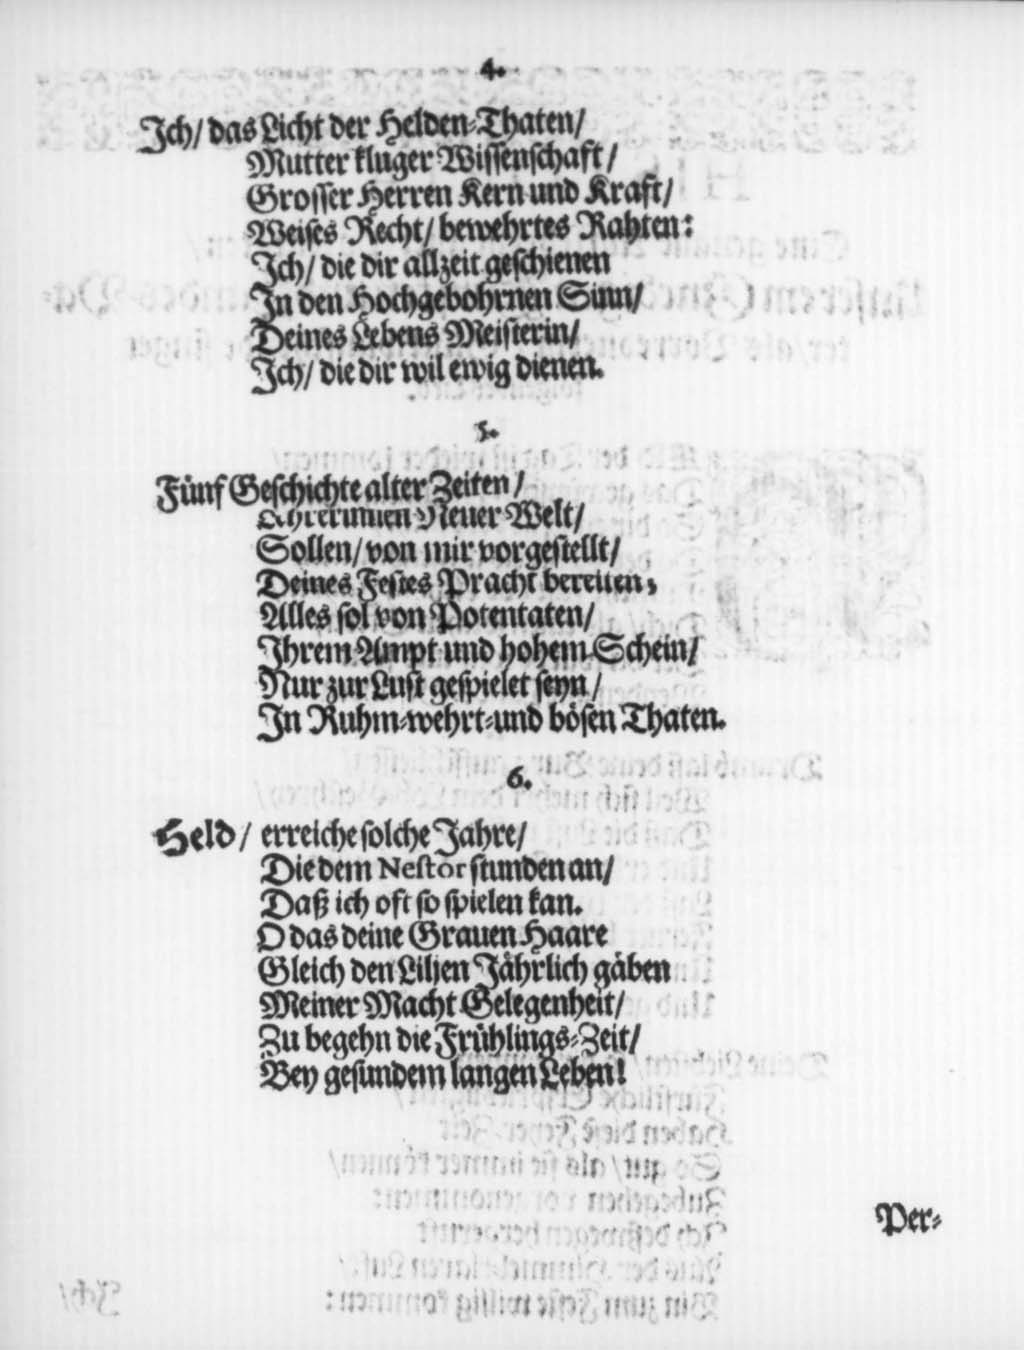 4.
Ich/ das Licht der Helden-Thaten/
Mutter kluger Wissenschaft/
Grosser Herren Kern und Kraft/
Weises Recht/ bewehrtes Rahten:
Ich/ die dir allzeit geschienen
In den Hochgebohrnen Sinn/
Deines Lebens Meisterin/
Ich/ die dir wil ewig dienen.
5.
Fünf Geschichte alter Zeiten/
Lehrerinnen Neuer Welt/
Sollen/ von mir vorgestellt/
Deines Festes Pracht bereiten;
Alles sol von Potentaten/
Ihrem Ampt und hohem Schein/
Nur zur Lust gespielet seyn/
In Ruhm-wehrt-und bösen Thaten.
6.
Held/ erreiche solche Jahre/
Die dem Nestor stunden an/
Daß ich oft so spielen kan.
O das deine Grauen Haare
Gleich den Liljen Jährlich gäben
Meiner Macht Gelegenheit/
Zu begehn die Frühlings-Zeit/
Bey gesundem langen Leben!
Per-